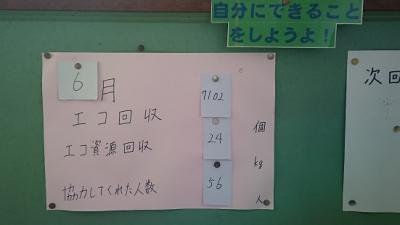 自分にできること
をしようよ！
6月
エコ回収 7102 個
エコ資源回収 24 kg
協力してくれた人数 56 人
次回